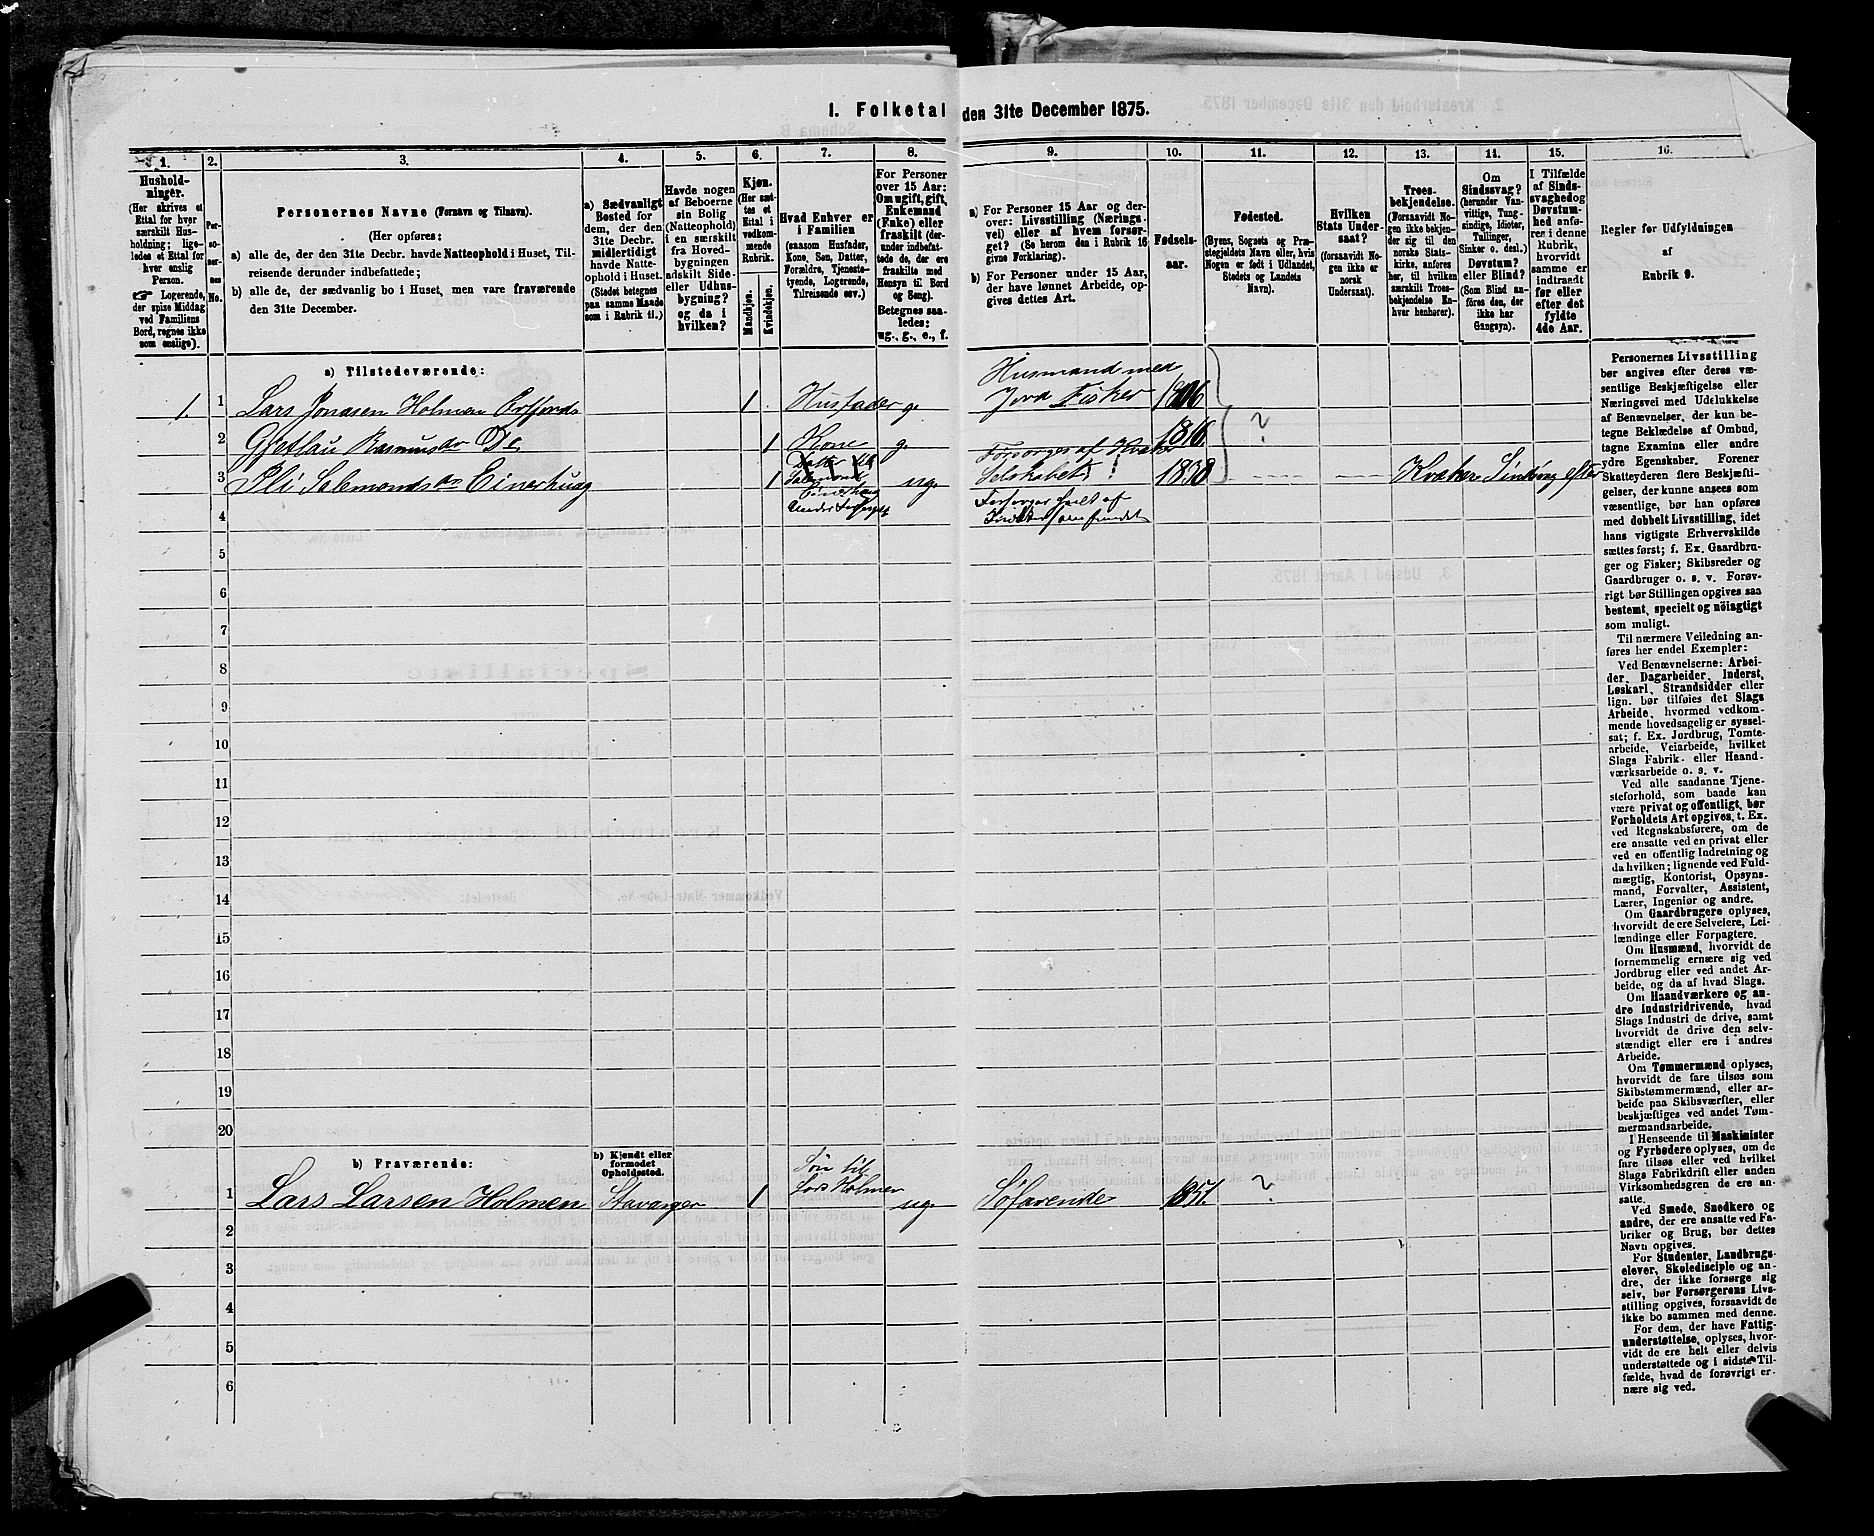 1. Folketal den 31te December 1875.
1. 2. 3. 4. 5. 6. 7. 8. 9. 10. 11. 12. 13. 14. 15. 16.
Hushold-
ninger.
(Her skrives et
Ettal for hver
særskilt Hus-
holdning; lige-
ledes et Ettal for
hver enslig
Person.
☞ Logerende,
der spise Middag
ved Familiens
Bord, regnes ikke
som enslige).
Per-
so-
ner-
nes
No.
Personernes Navne (Fornavn og Tilnavn).
(Her opføres:
a) alle de, der den 31te Decbr. havde Natteophold i Huset, Til-
reisende derunder indbefattede;
b) alle de, der sædvanlig bo i Huset, men vare fraværende
den 31te December.
a) Sædvanligt
Bosted for
dem, der den
31te Decbr.
midlertidigt
havde Natte-
ophold i Huset.
(Stedet betegnes
paa samme Maade
som i Rubrik 11.)
Havde nogen
af Beboerne
sin Bolig
(Natteophold)
i en særskilt
fra Hoved-
bygningen
adskilt Side-
eller Udhus-
bygning?
og da i
hvilken?
Kjøn.
(Her sæt-
tes et
Ettal i
vedkom-
mende
Rubrik.
Mandkjøn.
Kvindekjøn.
Hvad Enhver er
i Familien
(saasom Husfader,
Kone, Søn, Datter,
Forældre, Tjeneste-
tyende, Logerende,
Tilreisende osv.)
For Personer
over 15 Aar:
Om ugift, gift,
Enkemand
(Enke) eller
fraskilt (der-
under indbefat-
tede de, der ere
fraskilte med
Hensyn til Bord
og Seng).
Betegnes saa-
ledes:
ug., g., e., f.
a) For Personer 15 Aar og der-
over: Livsstilling (Nærings-
vei) eller af hvem forsør-
get? (Se herom den i Rubrik 16
givne Forklaring).
b) For Personer under 15 Aar,
der have lønnet Arbeide, op-
gives dettes Art.
Fødsels-
aar.
Fødested.
(Byens, Sognets og Præ-
stegjeldets Navn eller, hvis
Nogen er født i Udlandet,
Stedets og Landets
Navn).
Hvilken
Stats Under-
saat?
(forsaavidt No-
gen ikke er
norsk
Undersaat).
Troes-
bekjendelse.
(Forsaavidt No-
gen ikke bekjen-
der sig til den
norske Stats-
kirke, anføres
her, til hvilken
særskilt Troes-
bekjendelse En-
hver henhører).
Om
Sindssvag?
(herunder Van-
vittige, Tung-
sindige, Idioter,
Tullinger,
Sinker o. desl.)
Døvstum?
eller Blind?
(Som Blind an-
føres den, der
ikke har
Gangsyn).
I Tilfælde
af Sinds-
svaghed og
Døvstum-
hed anfø-
res i denne
Rubrik,
hvorvidt
samme er
indtraadt
før eller
efter det
fyldte
4de Aar.
Regler før Udfyldningen
af
Rubrik 9.
a) Tilstedeværende:
1. 1 Lars Jonasen Holmen 1 Husfader g. Husmand med
Jord Fisker ?
2 Rasmusdr. Do 1 Kone g. 1816
3 Salemonsdr Einerhaug 1 ug. Forsørges af Kvæker
Selskabet Kvæker efter
4 Forsørges helt af
5
6
7
8
9
10
11
12
13
14
15
16
17
18
19
20
b) Fraværende:
b) Kjendt eller
formodet
Opholdssted.
1 Lars Larsen Holmen Stavanger 1 Søn til
Lars Holmen ug. Søfarende 1851 ?
2
3
4
5
6
Personernes Livsstilling
bør angives efter deres væ-
sentlige Beskjæftigelse eller
Næringsvei med Udelukkelse
af Benævnelser, der kun be-
tegne Beklædelse af Ombud,
tagne Examina eller andre
ydre Egenskaber. Forener
Skatteyderen flere Beskjæfti-
gelser, der kunne ansees som
væsentlige, bør han opføres
med dobbelt Livsstilling, idet
hans vigtigste Erhvervskilde
sættes først; f. Ex. Gaardbru-
ger og Fisker; Skibsreder og
Gaardbruger o. s. v. Forøv-
rigt bør Stillingen opgives saa
bestemt, specielt og nöiagtigt
som muligt.
Til nærmere Veiledning an-
føres her endel Exempler:
Ved Benævnelserne: Arbei-
der, Dagarbeider, Inderst,
Løskarl, Strandsidder eller
lign. bør tilføies det Slags
Arbeide, hvormed vedkom-
mende hovedsagelig er syssel-
sat; f. Ex. Jordbrug, Tomte-
arbeide, Veiarbeide, hvilket
Slags Fabrik- eller Haand-
værksarbeide o. s. v.
Ved alle saadanne Tjene-
steforhold, som baade kan
være privat og offentligt, bør
Forholdets Art opgives, t. Ex.
ved Regnskabsførere, om de
ere ansatte ved en privat eller
ved en offentlig Indretning og
da hvilken; lignende ved Fuld-
mægtig, Kontorist, Opsyns-
mand, Forvalter, Assistent,
Lærer, Ingeniør og andre.
Om Gaardbrugere oplyses,
hvorvidt de ere Selveiere, Lei-
lændinge eller Forpagtere.
Om Husmænd, hvorvidt de
fornemmelig ernære sig ved
Jordbrug eller ved andet Ar-
beide, og da af hvad Slags.
Om Haandværkere og an-
dre Industridrivende, hvad
Slags Industri de drive, samt
hvorvidt de drive den selv-
stændigt eller ere i andres
Arbeide.
Om Tømmermænd oplyses,
hvorvidt de fare tilsøs som
Skibstømmermænd, eller ar-
beide paa Skibsværfter, eller
beskjæftiges ved andet Tøm-
mermandsarbeide.
I Henseende til Maskinister
og Fyrbødere oplyses, om de
fare tilsøs eller ved hvilket
Slags Fabrikdrift eller anden
Virksomhedsgren de ere an-
satte.
Ved Smede, Snedkere og
andre, der ere ansatte ved Fa-
briker og Brug, bør dettes
Navn opgives.
For Studenter, Landbrugs-
elever, Skoledisciple og an-
dre, der ikke forsørge sig
selv, bør Forsørgerens Livs-
stilling opgives, forsaavidt de
ikke bo sammen med denne.
For dem, der have Fattig-
understøttelse, oplyses, hvor-
vidt de ere helt eller delvis
understøttede og i sidste Til-
fælde, hvad de forøvrigt er-
nære sig ved.